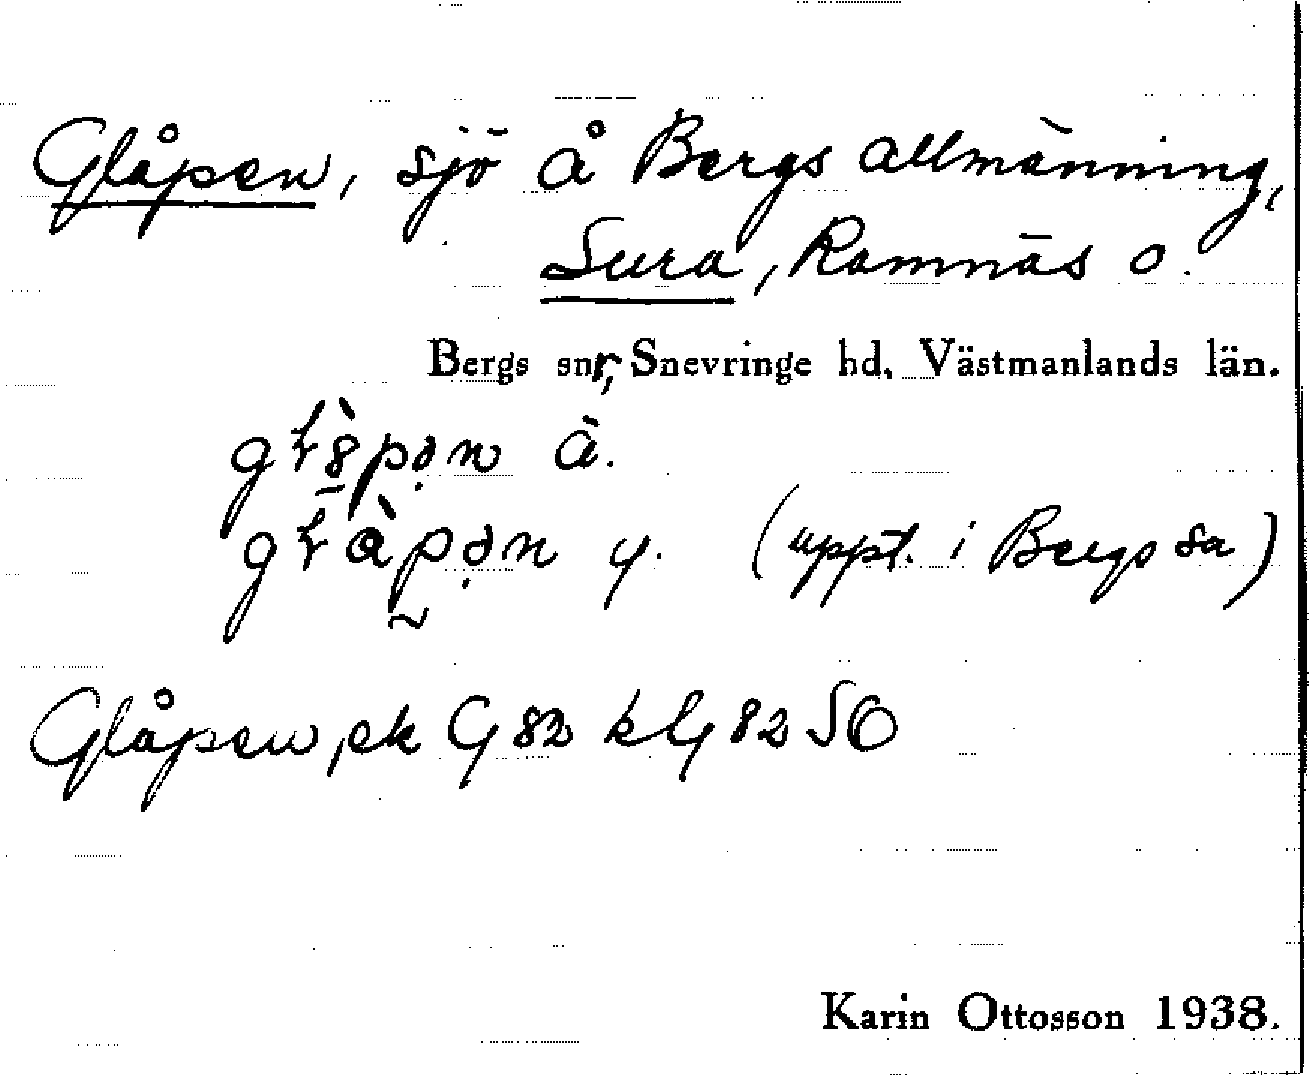 Glåpen, sjö å Bergs allmänning,
Sura, Ramnäs o.
Bergs snr, Snevringe hd, Västmanlands län.
à.
y. (uppt. i Bergs sn)
Glåpen, ek G 82 kG 82 SO
Karin Ottosson 1938.